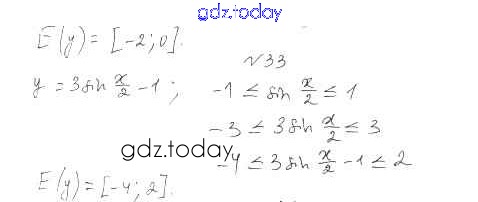 gdz.today
E(y) = [-2; 0].
№33
y = 3 sin x/2 - 1; -1 ≤ sin x/2 ≤ 1
-3 ≤ 3 sin x/2 ≤ 3
gdz.today
-4 ≤ 3 sin x/2 - 1 ≤ 2
E(y) = [-4; 2].